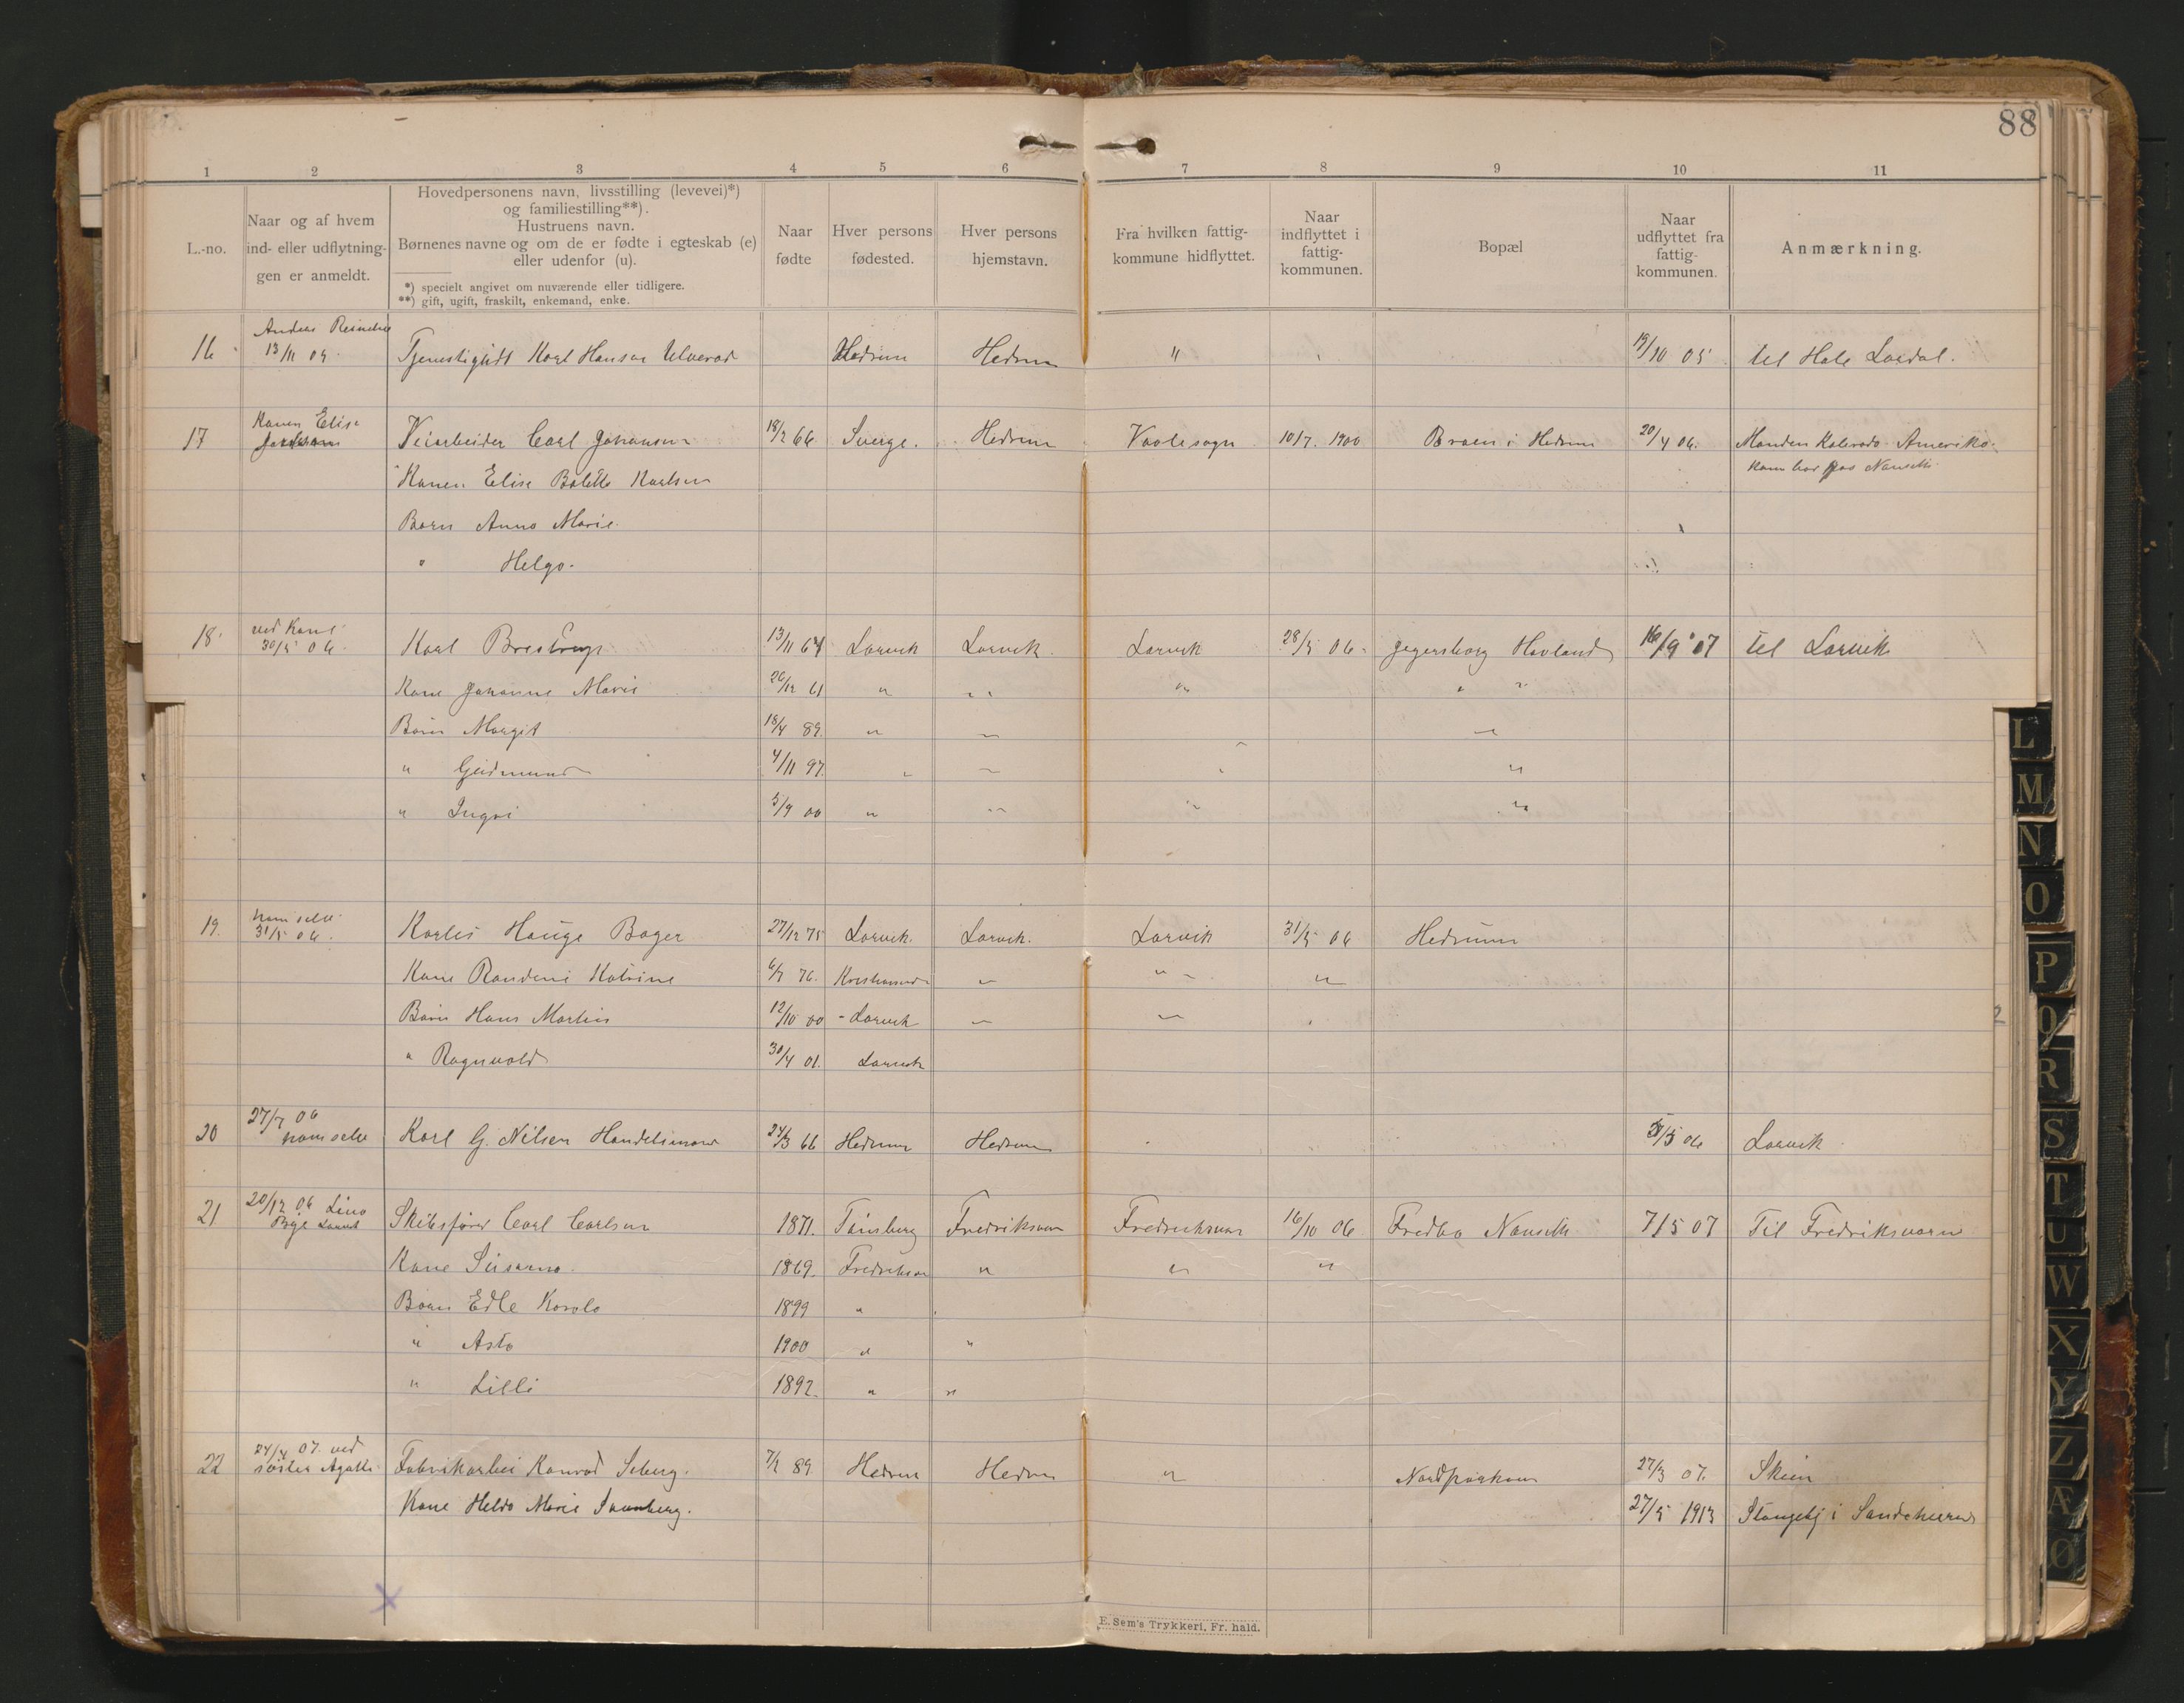 88
1 2 3 4 5 6 7 8 9 10 11
L.-no.
Naar og af hvem
ind- eller udflytnin-
gen er anmeldt.
Hovedpersonens navn, livsstilling (levevei)*)
og familiestilling**).
Hustruens navn.
Børnenes navne og om de er fødte i egteskab (e)
eller udenfor (u).
*) specielt angivet om nuværende eller tidligere.
**) gift, ugift, fraskilt, enkemand, enke.
Naar
fødte
Hver persons
fødested.
Hver persons
hjemstavn.
Fra hvilken fattig-
kommune hidflyttet.
Naar
indflyttet i
fattig-
kommunen.
Bopæl
Naar
udflyttet fra
fattig-
kommunen.
Anmærkning.
Anders
16 13/11 05. Karl Hansen Hedrum Hedrum " 19/10 05 til Hole Lardal.
Konen Elise
17 Veiarbeider Carl Johansen 18/2 66 Sverge. Hedrum Vaale sogn 10/7. 1900 Braen i Hedrum 20/4 06. Manden Kolorado Amerika
Konen Elise Karlsen Kone bor paa Nanseth
Barn Anna Marie
" Helga.
ved Kone
18 30/5 06. Karl 13/11 64 Larvik Larvik Larvik 28/5 06. Jegersborg Hovland 16/9 07 til Larvik
Kone Johanne Marie 26/12 61 " " " "
Børn Margit 18/4 89. " " "
" Gudmund 4/11 97. " " " "
" Ingvi 5/9 00 " " " "
ham selv
19. 31/5 06. Karlis Hauge Bager 27/12 75 Larvik. Larvik. Larvik 31/5 06 Hedrum
Kone Randine Katrine 6/7 76. Kristiansund " " "
Børn Hans Martin 12/10 00 - Larvik " "
" Ragnvald 30/4 01. Larvik
27/7 06
20 ham selv Karl G. Nilsen Handelsmand 24/3 66 Hedrum Hedrum 06 Larvik
20/12 06 Lina
21 Larvik Skibsfører Carl Carlsen 1871. Tønsberg Fredriksvarn Fredriksvarn 16/10 06 Fredbo Nanseth 7/5 07 Til Fredriksvarn
Kone Susanna. 1869. Fredriksvarn " " "
Børn Edle Karola 1899 "
" Asta 1900 " "
" Lilli 1892. " "
24/4 07. ved
22 søster Agathe Fabrikarbei Konrad Seberg. 7/2 89 Hedrum Hedrum " 27/3 07. Skien
Kone Helda Marie 27/5 1913 i Sandeherred
E. Sem's Trykkeri, Fr. hald.
L
M
N
O
P
Q
R
S
T
U
W
X
Y
Z
Æ
Ø